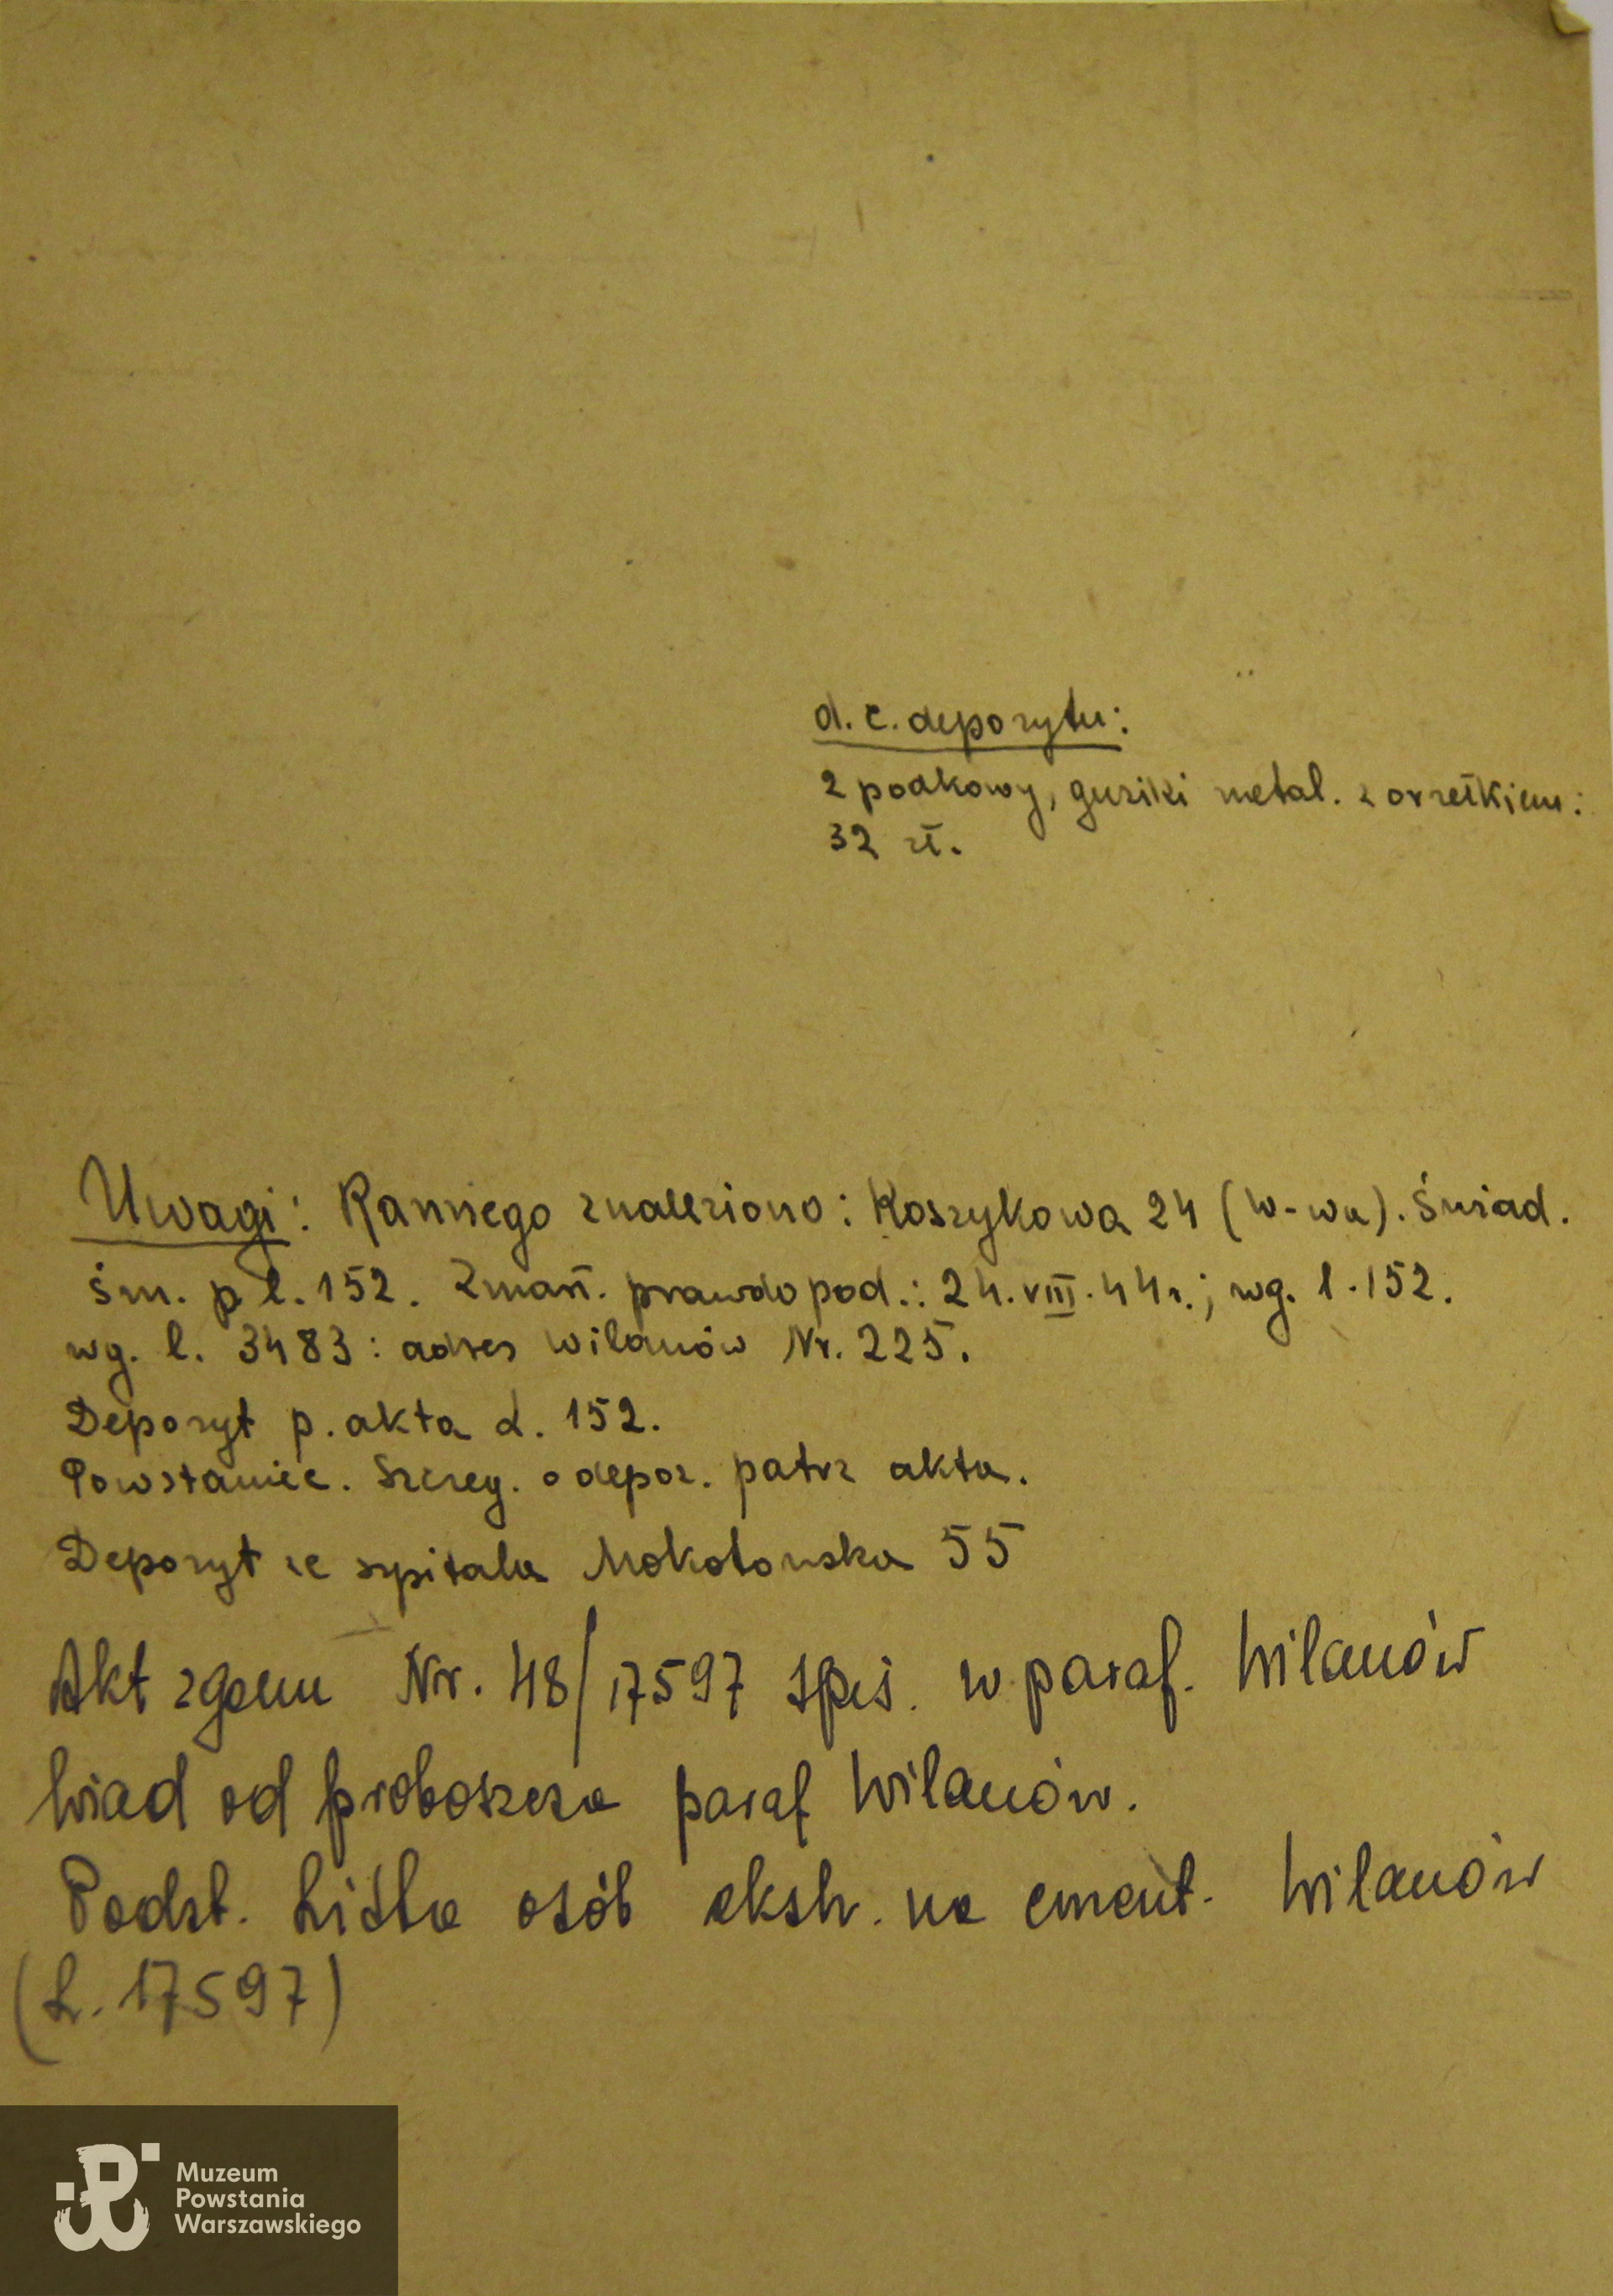 d. c. depozytu:
2 podkowy, guziki metal. z orzełkiem:
32 zł.
Uwagi: Rannego znaleziono: Koszykowa 24 (W-wa). Świad.
śm. p l. 152. Zmarł. prawdopod.: 24.VIII.44r.; wg. l. 152.
wg. l. 3483: adres Wilanów Nr. 225.
Depozyt p. akta L. 152.
Powstaniec. Szczeg. o depoz. patrz akta.
Depozyt ze szpitala Mokotowska 55
Akt zgonu Nr. 48/17597 spis. w paraf. Wilanów
Wiad od proboszcza paraf Wilanów.
Podst. Lista osób eksh. na cment. Wilanów
(L. 17597)
Muzeum
Powstania
Warszawskiego